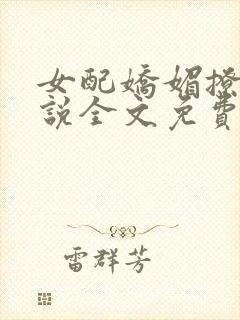 女配嬌媚撩
說全文免費
雷群芳